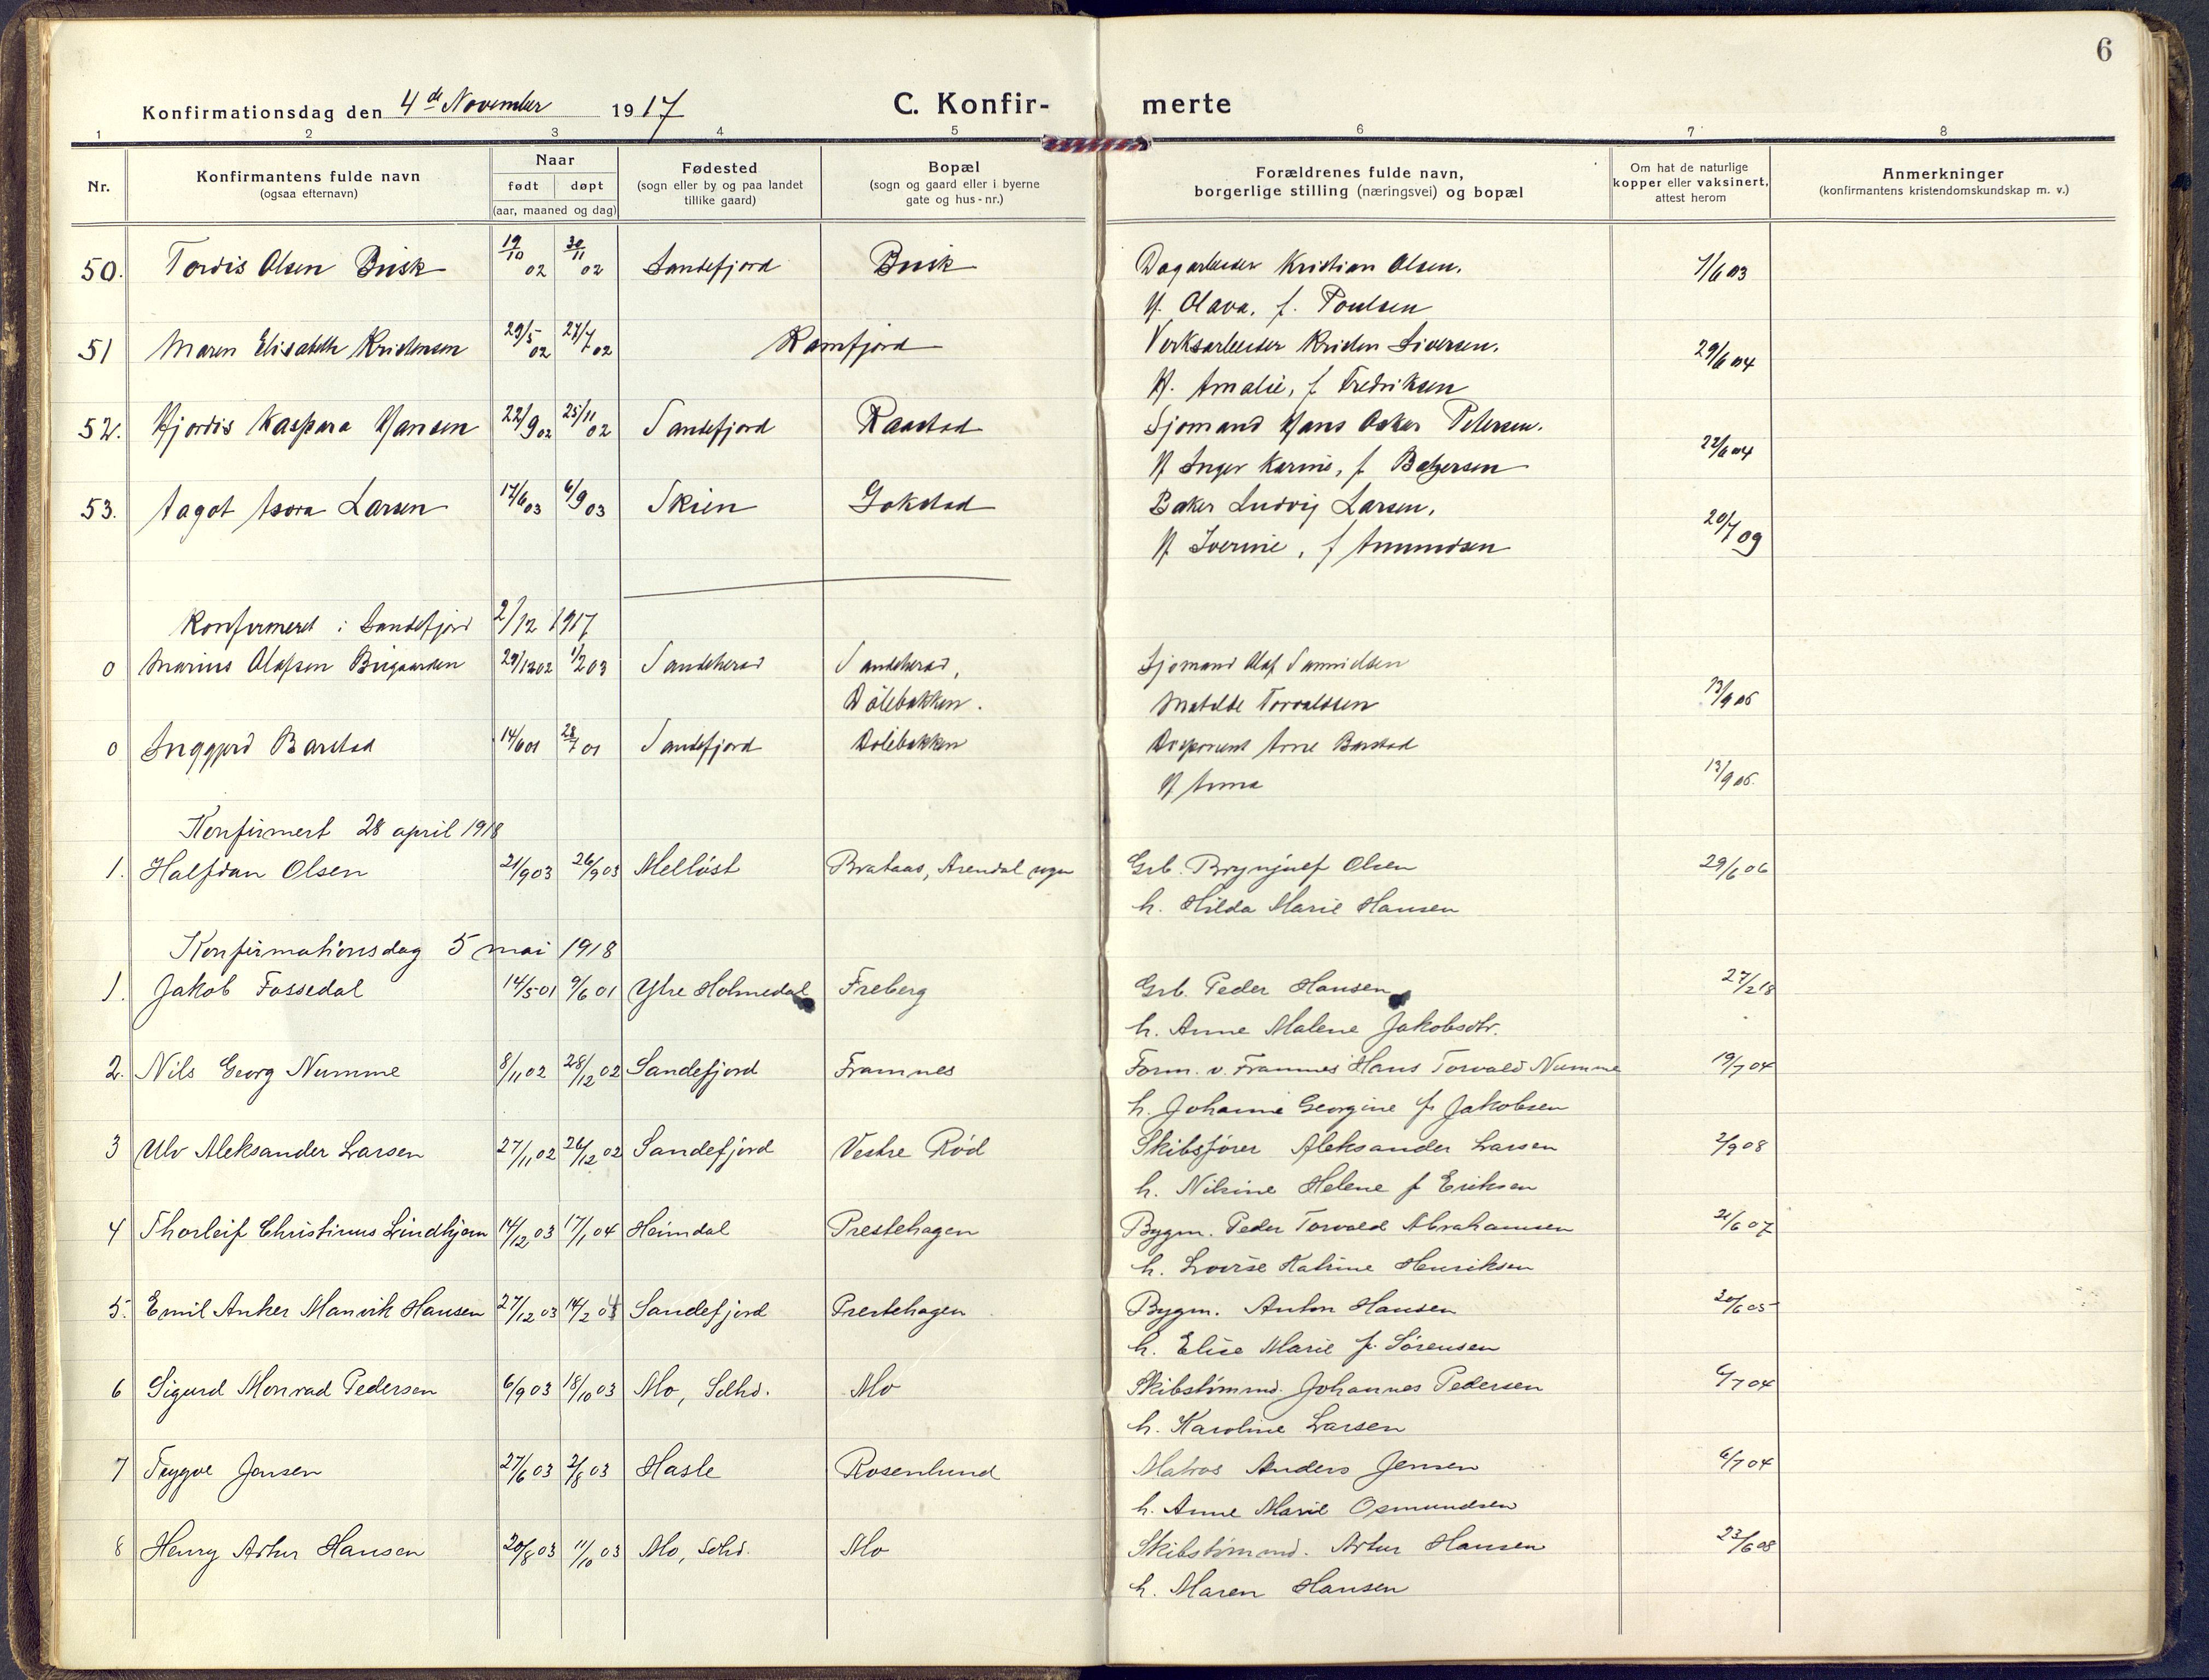 6
Konfirmationsdag den 4de November 1917 C. Konfir- merte
1 2 3 4 5 6 7 8
Nr. Konfirmantens fulde navn (ogsaa efternavn) Naar født døpt (aar, maaned og dag) Fødested (sogn eller by og paa landet tillike gaard) Bopæl (sogn og gaard eller i byerne gate og hus-nr.) Forældrenes fulde navn, borgerlige stilling (næringsvei) og bopæl Om hat de naturlige kopper eller vaksinert, attest herom Anmerkninger (konfirmantens kristendomskundskap m. v.)
50. Tordis Olsen Busk 19/10 02 30/11 02 Sandefjord Busk Dagarbeider Kristian Olsen. 1/6 03
H. Olava, f. Poulsen
51 Maren Elisabeth Kristensen 29/5 02 27/7 02 Kamfjord Verksarbeider Kristen Siversen. 29/6 04
H. Amalie, f Fredriksen
52. Hjordis Kaspara Hansen 22/9 02 25/11 02 Sandefjord Raastad Sjømand Hans Oskar Petersen. 22/6 04
H Inger Karine, f
53. Aagot Asora Larsen 17/6 03 6/9 03 Skien Gokstad Baker Ludvig Larsen. 20/7 09
H Iverine, f Amundsen
Konfirmeret i Sandefjord 2/12 1917
0 Marius Olafsen Bugaarden 29/12 02 1/2 03 Sandeherad Sandeherad, Sjømand Olaf
Dølebakken. Matilde Torvaldsen 13/9 06
0 Inggjerd Barstad 14/6 01 28/7 01 Sandefjord Dølebakken Disponent Arne Barstad
H Anna 13/9 06.
Konfirmert 28 april 1918
1. Halfdan Olsen 21/9 03 26/9 03 Melløst Brataas, Arendal Grb. Brynjulf Olsen 29/6 06
h. Hilda Marie Hansen
Konfirmationsdag 5 mai 1918
1. Jakob Fossedal 14/5 01 9/6 01 Ytre Holmedal Freberg Grb. Peder Hansen 27/2 18
h. Anne Malene Jakobsdtr.
2. Nils Georg Numme 8/11 02 28/12 02 Sandefjord Framnes Form. v. Framnes Hans Torvald Numme 19/7 04
h. Johanne Georgine f. Jakobsen
3 Ulv Aleksander Larsen 27/11 02 26/12 02 Sandefjord Vestre Rød Skibsfører Aleksander Larsen 2/9 08
h. Nikine Helene f Eriksen
4 Thorleif Christinus Lindhjem 14/12 03 17/1 04 Heimdal Prestehagen Bygm. Peder Torvald Abrahamsen 21/6 07
h. Lovise Katrine Henriksen
5. Emil Anker Manvik Hansen 27/12 03 14/2 04 Sandefjord Prestehagen Bygm. Anton Hansen 20/6 05
h. Elise Marie f. Sørensen
6 Sigurd Monrad Pedersen 6/9 03 18/10 03 Mo, Sdhd. Mo Skibstømmd. Johannes Pedersen 6/7 04
h. Karoline Larsen
7 Trygve Jensen 27/6 03 2/8 03 Hasle Rosenlund Matros Anders Jensen 6/7 04
h. Anne Marie Osmundsen
8 Henry Artur Hansen 20/8 03 11/10 03 Mo, Sdhd. Mo Skibstømmd. Artur Hansen 23/6 08
h. Maren Hansen